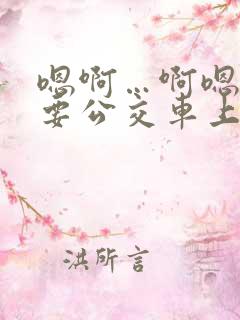 嗯啊…啊嗯
要公交車上
洪所言